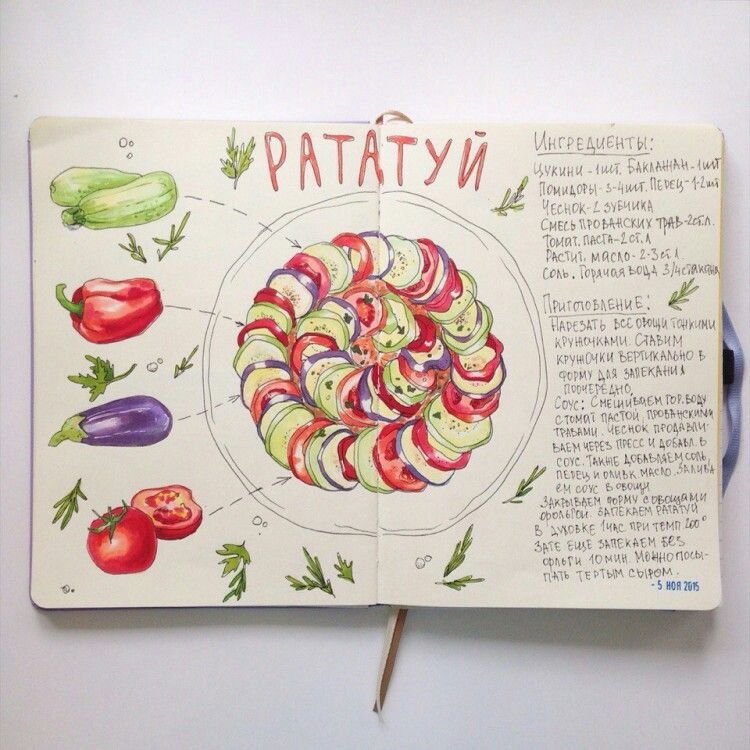 РАТАТУЙ
ИНГРЕДИЕНТЫ:
ЦУКИНИ - 1 ШТ. БАКЛАЖАН - 1 ШТ
ПОМИДОРЫ - 3-4 ШТ. ПЕРЕЦ - 1-2 ШТ
ЧЕСНОК - 2 ЗУБЧИКА
СМЕСЬ ПРОВАНСКИХ ТРАВ - 2 СТ.Л.
ТОМАТ. ПАСТА - 2 СТ.Л
РАСТИТ. МАСЛО - 2-3 СТ.Л.
СОЛЬ. ГОРЯЧАЯ ВОДА 3/4 СТАКАНА
ПРИГОТОВЛЕНИЕ:
НАРЕЗАТЬ ВСЕ ОВОЩИ ТОНКИМИ
КРУЖОЧКАМИ. СТАВИМ
КРУЖОЧКИ ВЕРТИКАЛЬНО В
ФОРМУ ДЛЯ ЗАПЕКАНИЯ
ПООЧЕРЕДНО.
СОУС: СМЕШИВАЕМ ГОР. ВОДУ
С ТОМАТ ПАСТОЙ, ПРОВАНСКИМИ
ТРАВАМИ. ЧЕСНОК ПРОДАВЛИ-
ВАЕМ ЧЕРЕЗ ПРЕСС И ДОБАВЛ. В
СОУС. ТАКЖЕ ДОБАВЛЯЕМ СОЛЬ,
ПЕРЕЦ И ОЛИВК. МАСЛО. ЗАЛИВА
ЕМ СОУС В ОВОЩИ
ЗАКРЫВАЕМ ФОРМУ С ОВОЩАМИ
ФОЛЬГОЙ. ЗАПЕКАЕМ РАТАТУЙ
В ДУХОВКЕ 1 ЧАС ПРИ ТЕМП 200°
ЗАТЕ ЕЩЕ ЗАПЕКАЕМ БЕЗ
ФОЛЬГИ 10 МИН. МОЖНО ПОСЫ-
ПАТЬ ТЕРТЫМ СЫРОМ.
- 5 НОЯ 2015